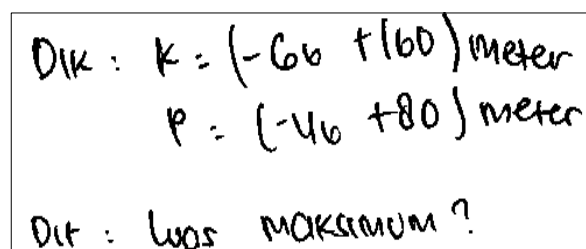 Dik : K = (-6b + 160) meter
P = (-4b + 80) meter
Dit : luas maksimum?